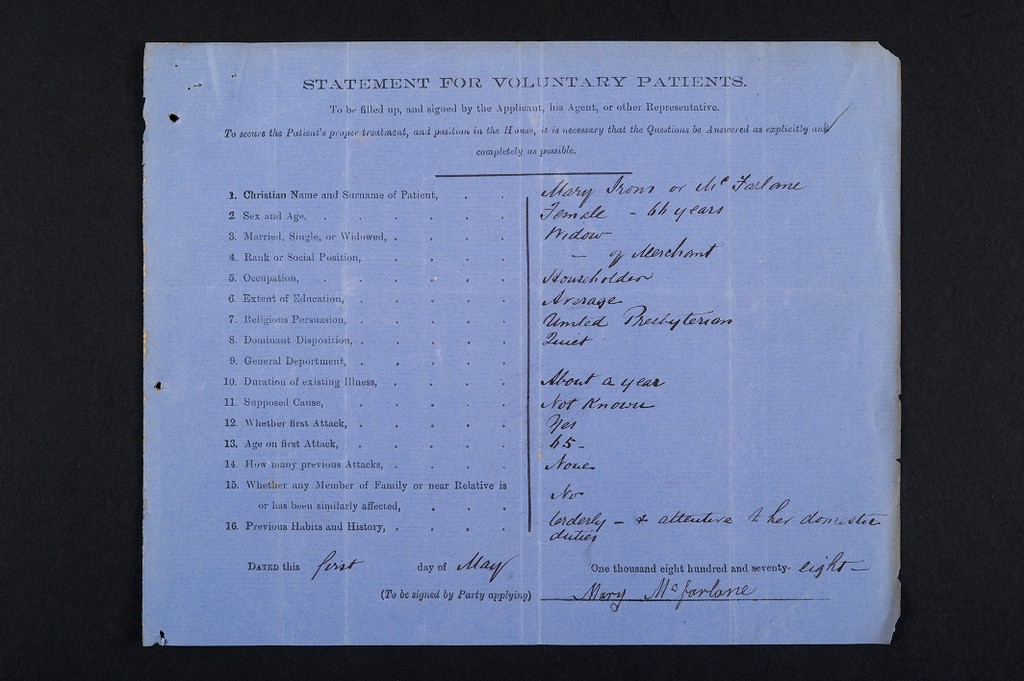 STATEMENT FOR VOLUNTARY PATIENTS.
To be filled up, and signed by the Applicant, his Agent, or other Representative.
To secure the Patient's proper treatment, and position in the House, it is necessary that the Questions be Answered as explicitly and
completely as possible.
1. Christian Name and Surname of Patient, . . Mary Irons or Mc Farlane
2. Sex and Age, . . . . . Female - 66 years
3. Married, Single, or Widowed, . . . . Widow
4. Rank or Social Position, . . . . - of Merchant
5. Occupation, . . . . . Householder
6. Extent of Education, . . . . Average
7. Religious Persuasion, . . . . United Presbyterian
8. Dominant Disposition, . . . . Quiet
9. General Deportment, . . . .
10. Duration of existing Illness, . . . . About a year
11. Supposed Cause, . . . . Not Known
12. Whether first Attack, . . . . Yes
13. Age on first Attack, . . . . 65 -
14. How many previous Attacks, . . . . None
15. Whether any Member of Family or near Relative is
or has been similarly affected, . . . No
16. Previous Habits and History, . . . . Orderly - & attentive to her domestic
duties
DATED this first day of May One thousand eight hundred and seventy- eight -
(To be signed by Party applying) Mary McFarlane